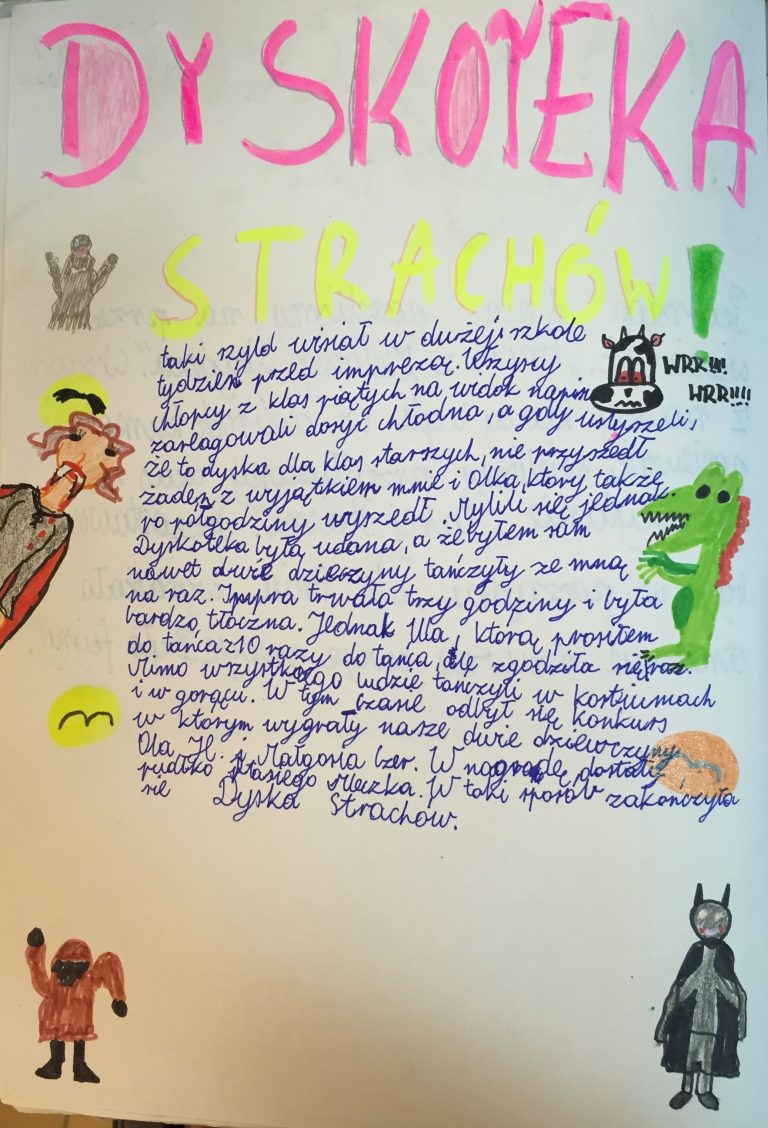 DYSKOTEKA
STRACHÓW!
taki szyld wisiał w dużej szkole
tydzień przed imprezą. Wszyscy
WRR!!!
WRR!!!!
chłopcy z klas piątych na widok napisu
zareagowali dosyć chłodna, a gdy usłyszeli,
że to dyska dla klas starszych, nie przyszedł
żaden z wyjątkiem mnie i Olka, który także
po półgodziny wyszedł. Mylili się jednak.
Dyskoteka była udana, a że byłem sam
nawet dwie dzieczyny tańczyły ze mną
na raz. Impra trwała trzy godziny i była
bardzo tłoczna. Jednak Ula, którą prosiłem
do tańca z 10 razy do tańca, nie zgodziła się raz.
Mimo wszystkiego ludzie tańczyli w kostiumach
i w gorącu. W tym czasie odbył się konkurs
w którym wygrały nasze dwie dziewczyny
Ola H. i Małgosia Czer. W nagrodę dostały
pudłko ptasiego mleczka. W taki sposób zakończyła
sie Dyska Strachów.